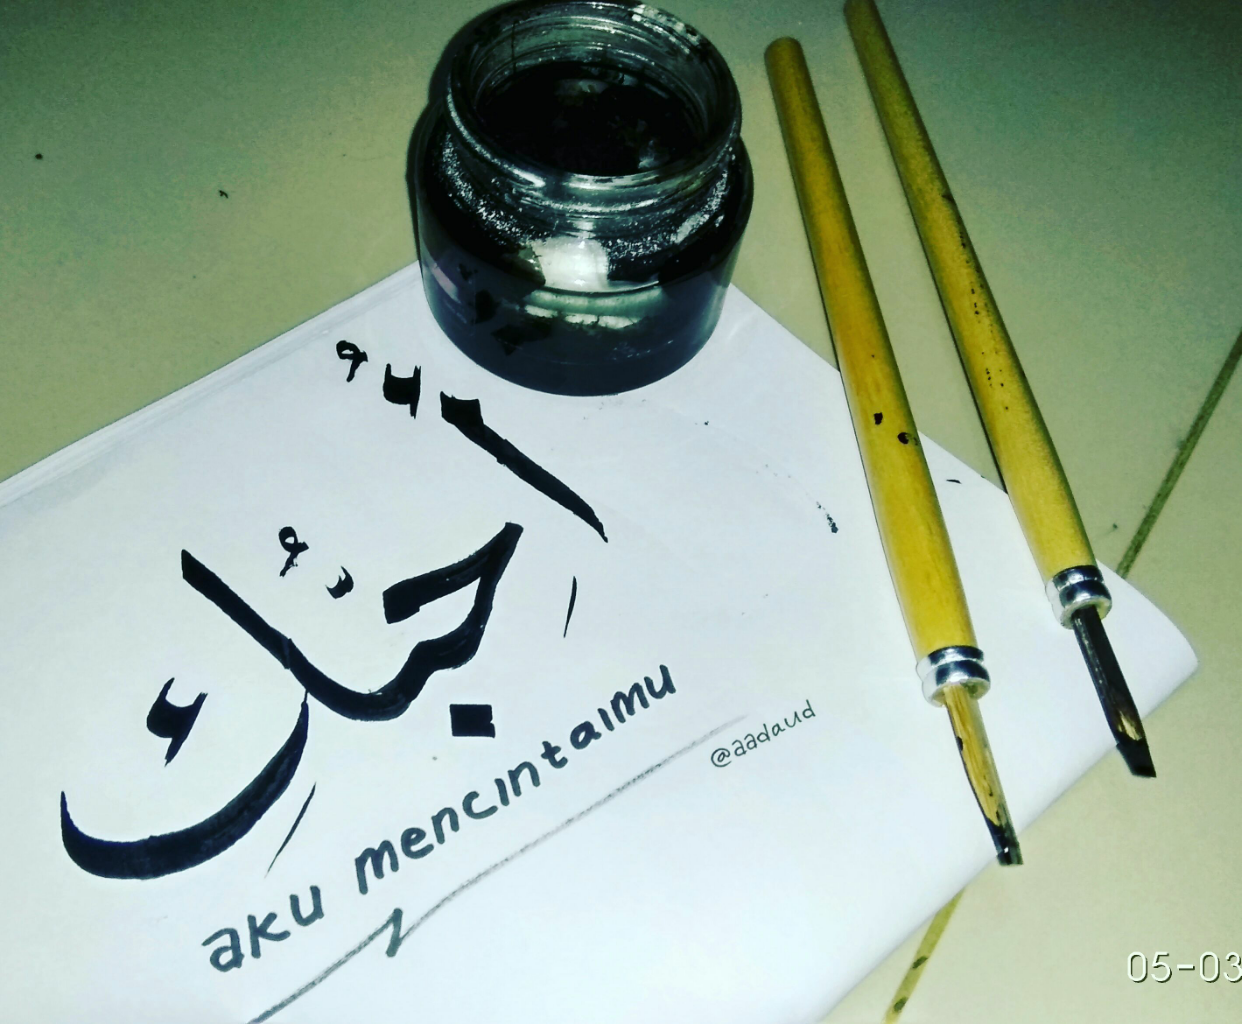 أُحِبُّكِ
aku mencintaimu
@aadaud
05-03